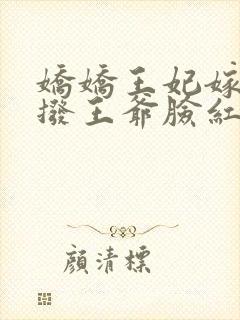 嬌嬌王妃嫁
撥王爺臉紅
顔清標